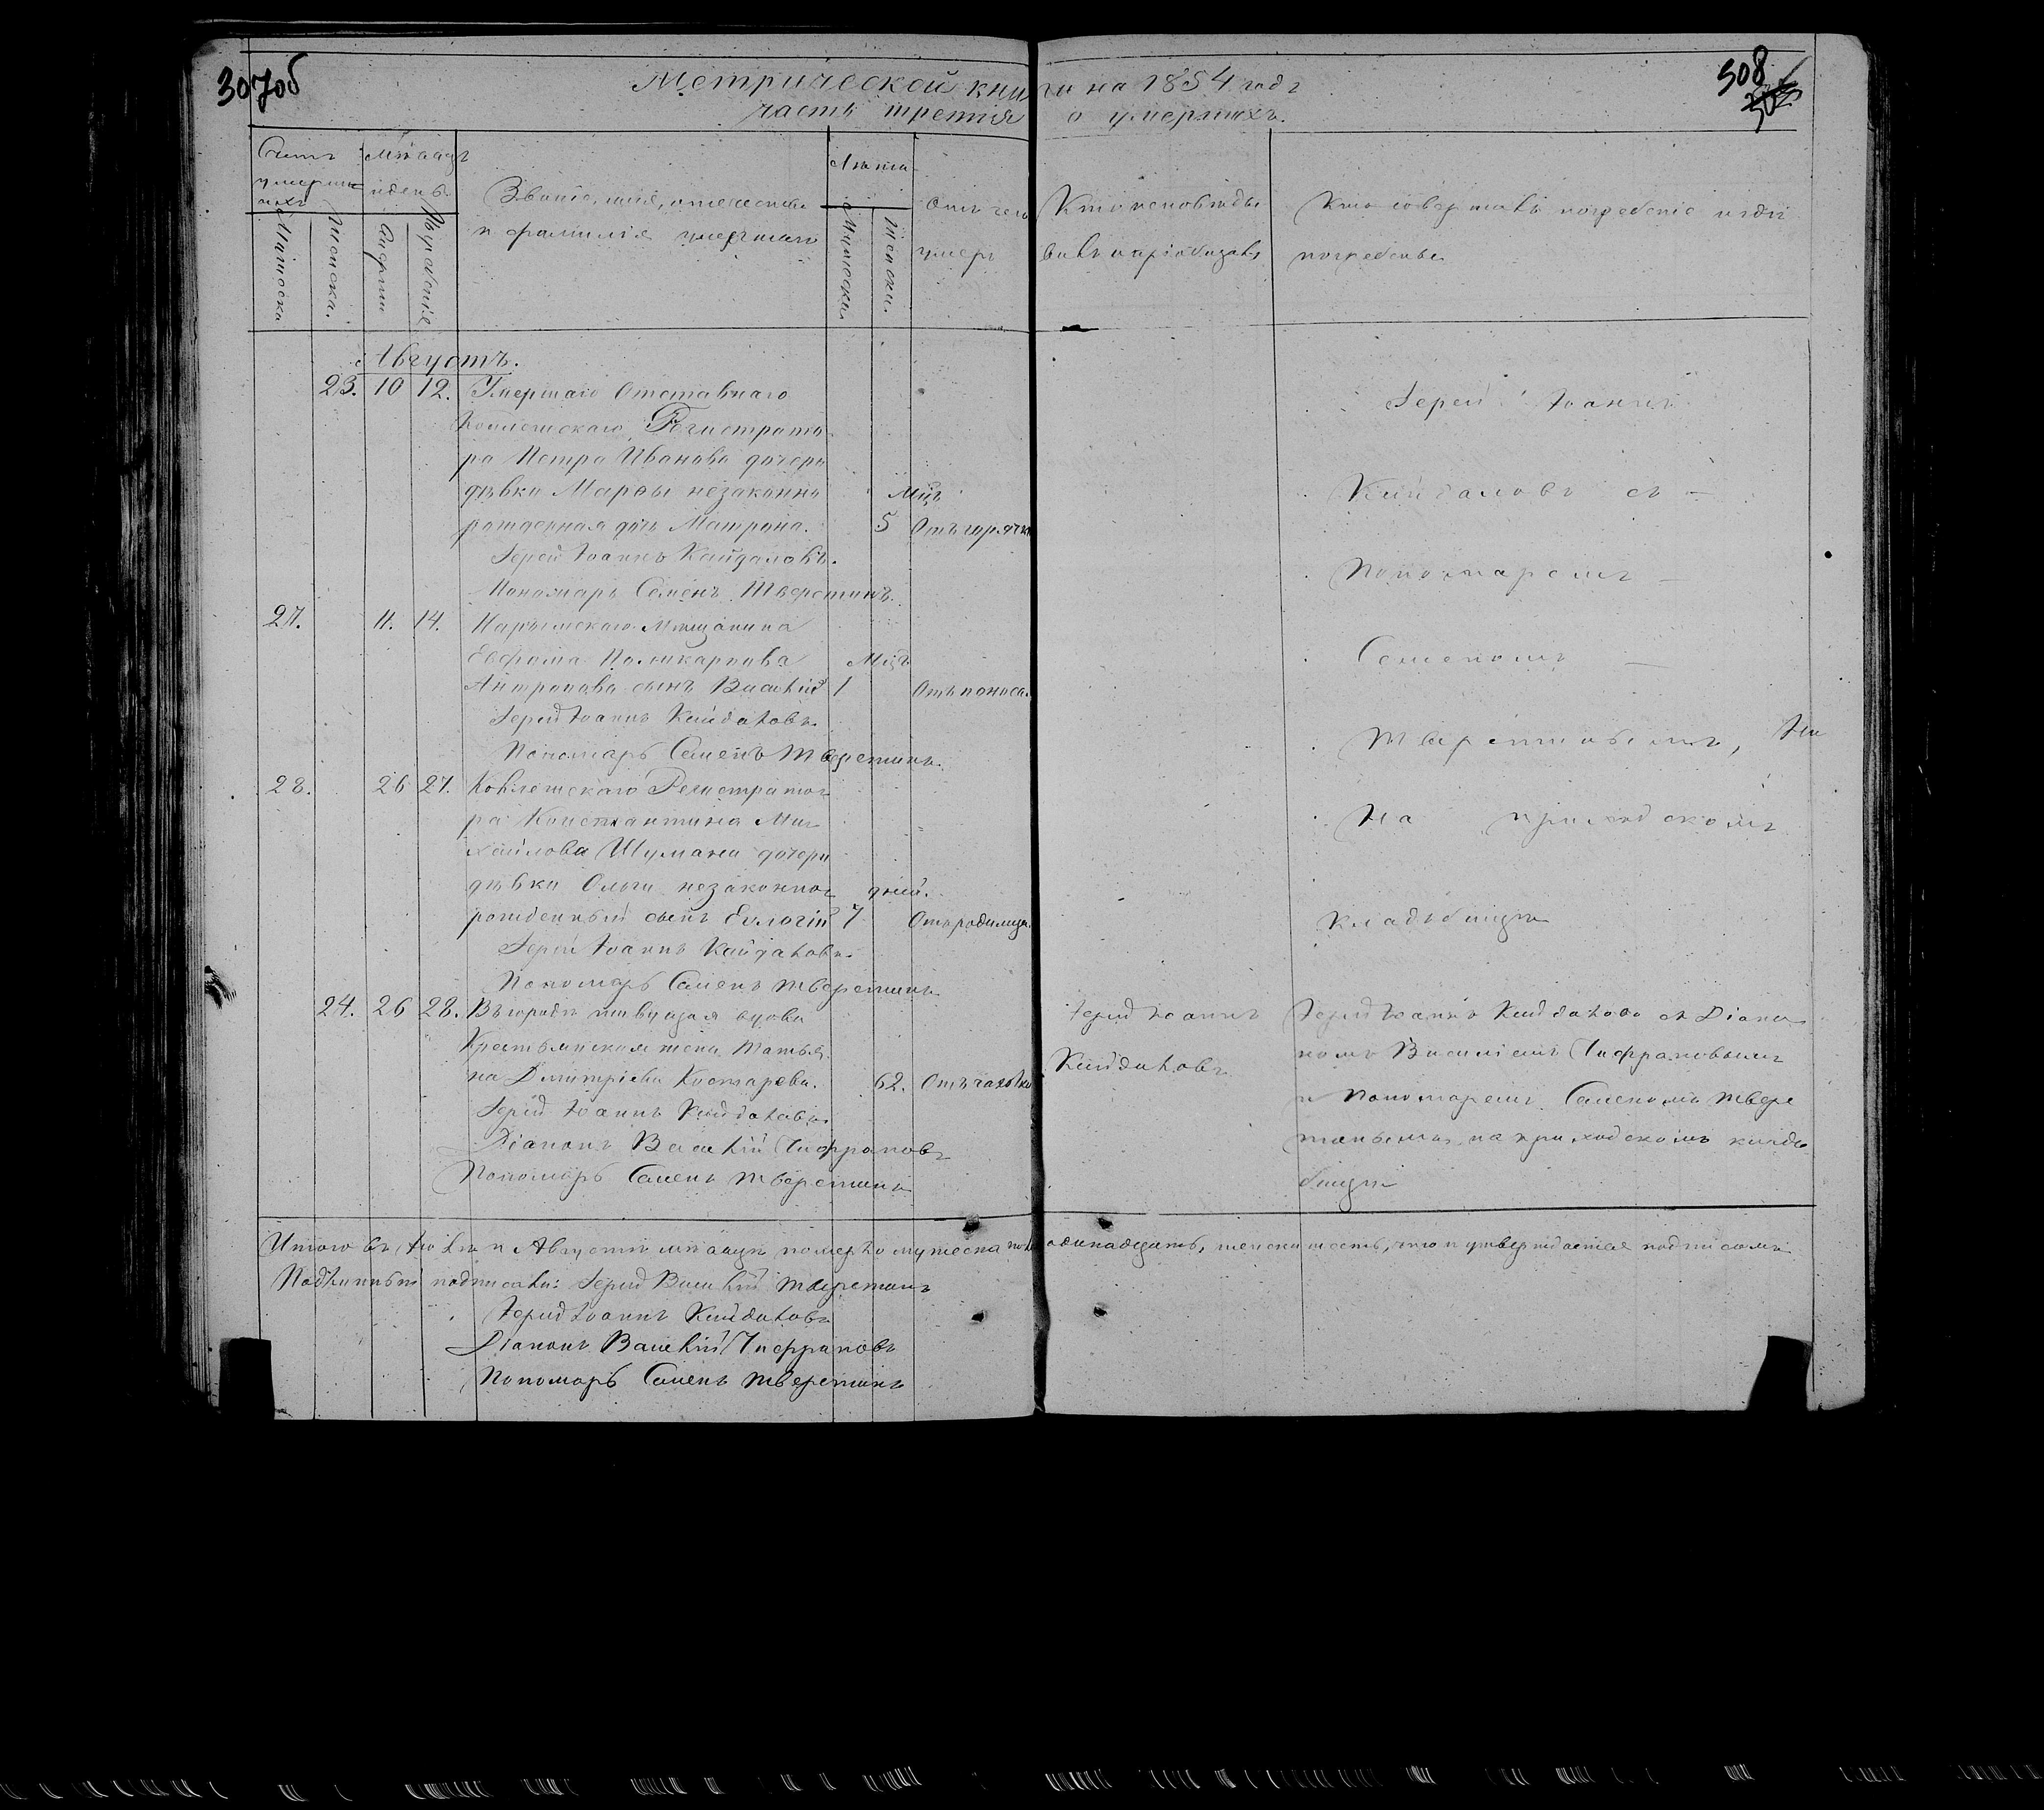 307об
508
Метрической книги на 1854 годъ
часть третія о умершихъ.
Счетъ умершихъ
Мужеска
Женска.
Мѣсяцъ и день.
Смерти
Погребенія
Званіе, имя, отчество и фамилія умершаго
Лѣта
Мужеска
Женска.
Отъ чего умеръ
Кто исповѣдывалъ и пріобщалъ
Кто совершалъ погребеніе и гдѣ погребены
Августъ.
23. 10 12. Умершаго Отставнаго
Коллежскаго Регистрато
ра Петра Иванова дочери
дѣвки Марѳы незаконно
рожденная дочь Матрона. Мѣц. 5 Отъ горячки
Іерей Іоаннъ Кайдаловъ.
Пономарь Семенъ Тверетинъ.
27. 11. 14. Нарымскаго Мѣщанина
Евфрома Поликарпова
Антропова сынъ Василій Мѣц. 1 Отъ поноса.
Іерей Іоаннъ Кайдаловъ.
Пономарь Семенъ Тверетинъ.
28. 26 27. Коллежскаго Регистрато
ра Константина Ми
хайлова Шумана дочери
дѣвки Ольги незаконно
рожденный сынъ Евлогій дней. 7 Отъ родимца.
Іерей Іоаннъ Кайдаловъ.
Пономарь Семенъ Тверетинъ
Іерей Іоаннъ
Кайдаловъ съ
Пономаремъ
Семеномъ
Тверетинымъ, На
На приходскомъ
кладбищѣ
24. 26 28. Въ городѣ живущая вдова
Крестьянская жена Татья
на Дмитріева Костарева. 62. Отъ чахотки
Іерей Іоаннъ Кайдаловъ.
Діаконъ Василій
Пономарь Семенъ Тверетинъ
Іерей Іоаннъ
Кайдаловъ
Іерей Іоаннъ Кайдаловъ съ Діако
номъ Василіемъ
и Пономаремъ Семеномъ Твере
тинымъ на приходскомъ кладь
бищѣ
Итого въ Іюлѣ и Августѣ мѣсяцѣ померло мужеска пола одинадцать, женска шесть, что и утверждается подписомъ
Подлинный подписали: Іерей Василій Тверетинъ
Іерей Іоаннъ Кайдаловъ
Діаконъ Василій
Пономарь Семенъ Тверетинъ